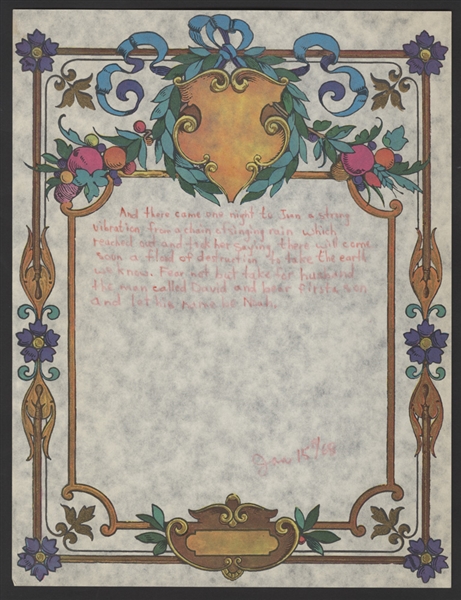 And there came one night to Jinn a strong
vibration, from a chain clinging main which
reached out and took her saying, there will come
soon a flood of destruction to take the earth
we know. Fear not but take for husband
the man called David and bear a son
and let his name be Noah.
Jan 15